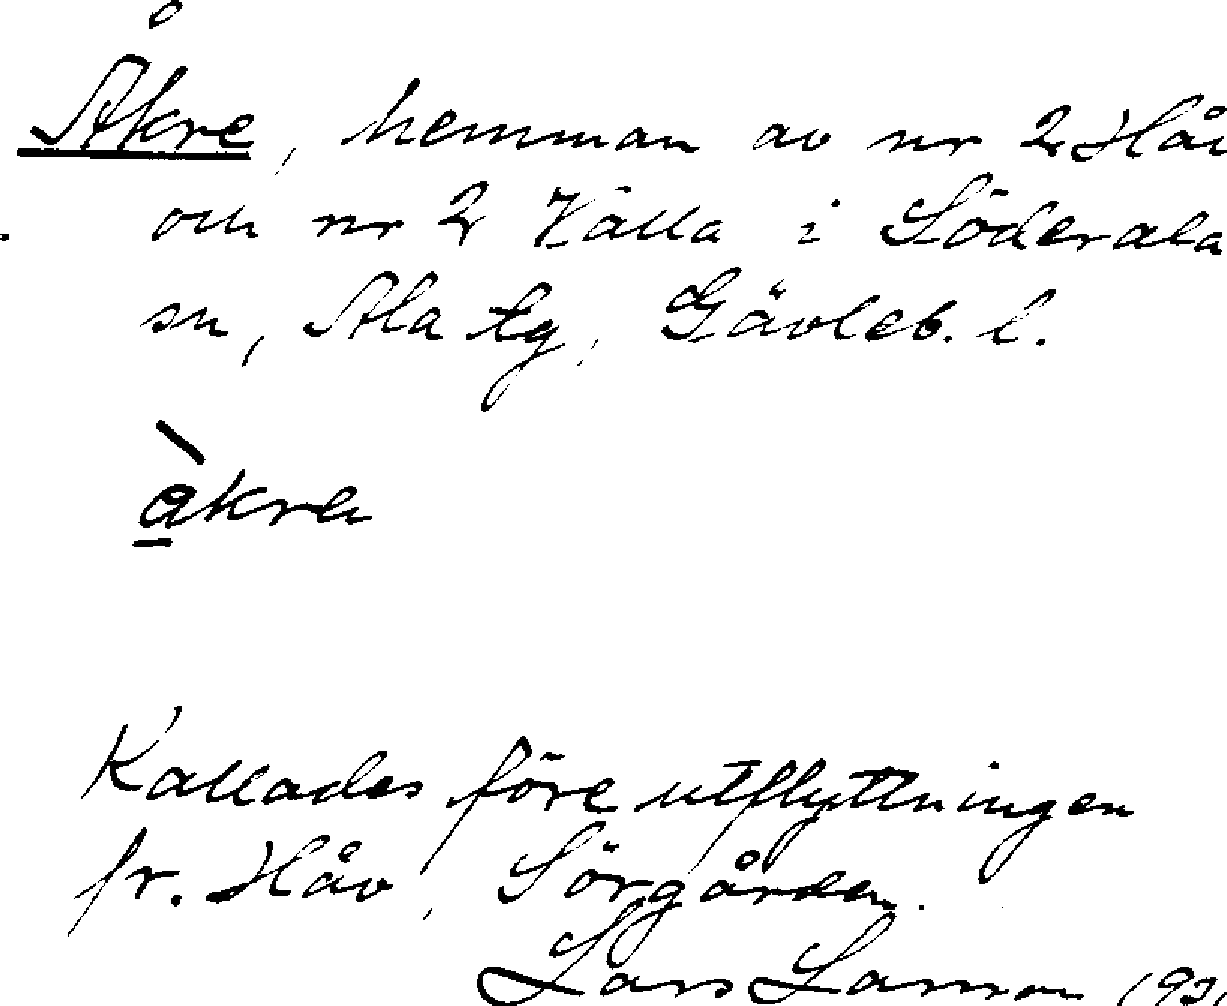 Åkre, hemman av nr 2 Håv
och nr 2 Källa i Söderala
sn, Ala tg, Gävleb. l.
àkra
Kallades före utflyttningen
fr. Håv, Sörgården.
Lars Larsson